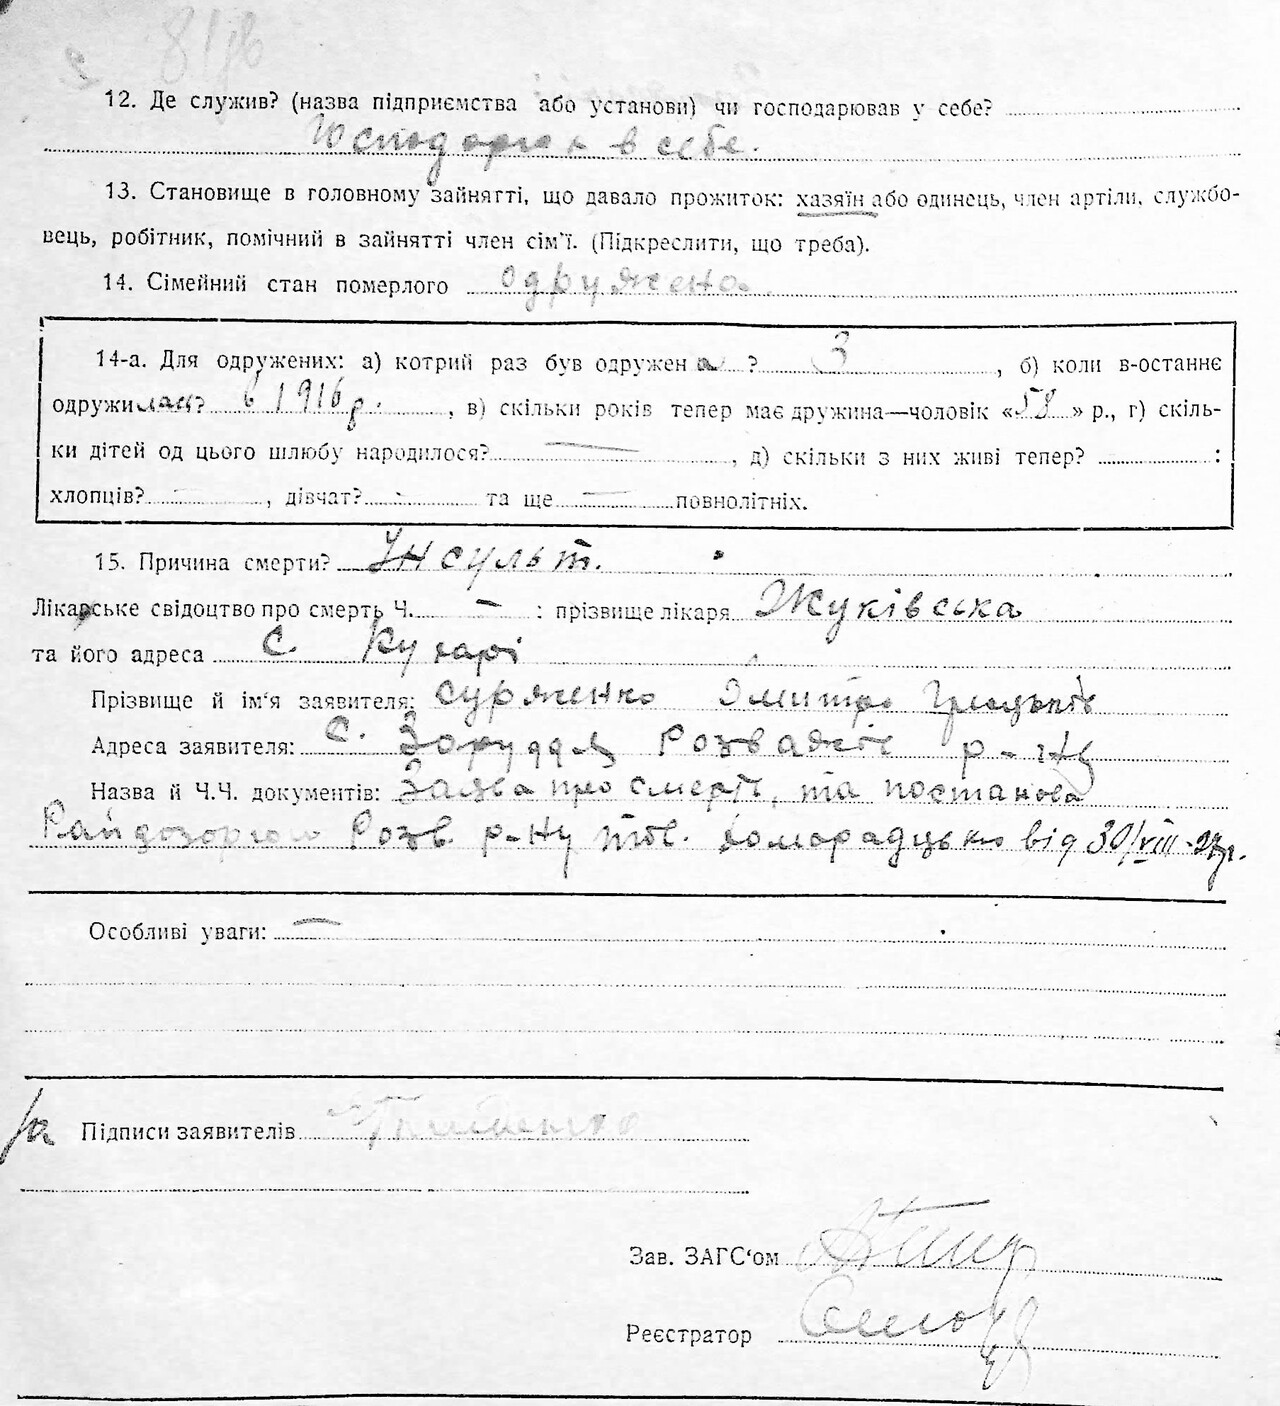 12. Де служив? (назва підприємства або установи) чи господарював у себе?
в себе.
13. Становище в головному зайнятті, що давало прожиток: хазяїн або одинець, член артілі, службо-
вець, робітник, помічний в зайнятті член сім'ї. (Підкреслити, що треба).
14. Сімейний стан померлого одружена.
14-а. Для одружених: а) котрий раз був одружен а ? 3 , б) коли в-останнє
одружилась? в 1916 р. , в) скільки років тепер має дружина—чоловік «58» р., г) скіль-
ки дітей од цього шлюбу народилося? — , д) скільки з них живі тепер? :
хлопців? — , дівчат? - та ще — повнолітніх.
15. Причина смерти? Інсульт.
Лікарське свідоцтво про смерть Ч. — : прізвище лікаря Жуківська
та його адреса с. Кухарі
Прізвище й ім'я заявителя: Дмитро
Адреса заявителя: с. Заруддя Розважів р-ну
Назва й Ч.Ч. документів: Заява про смерть, та постанова
Розв. р-ну тов. від 30/VIII-27р.
Особливі уваги: —
Підписи заявителів
Зав. ЗАГС'ом
Реєстратор